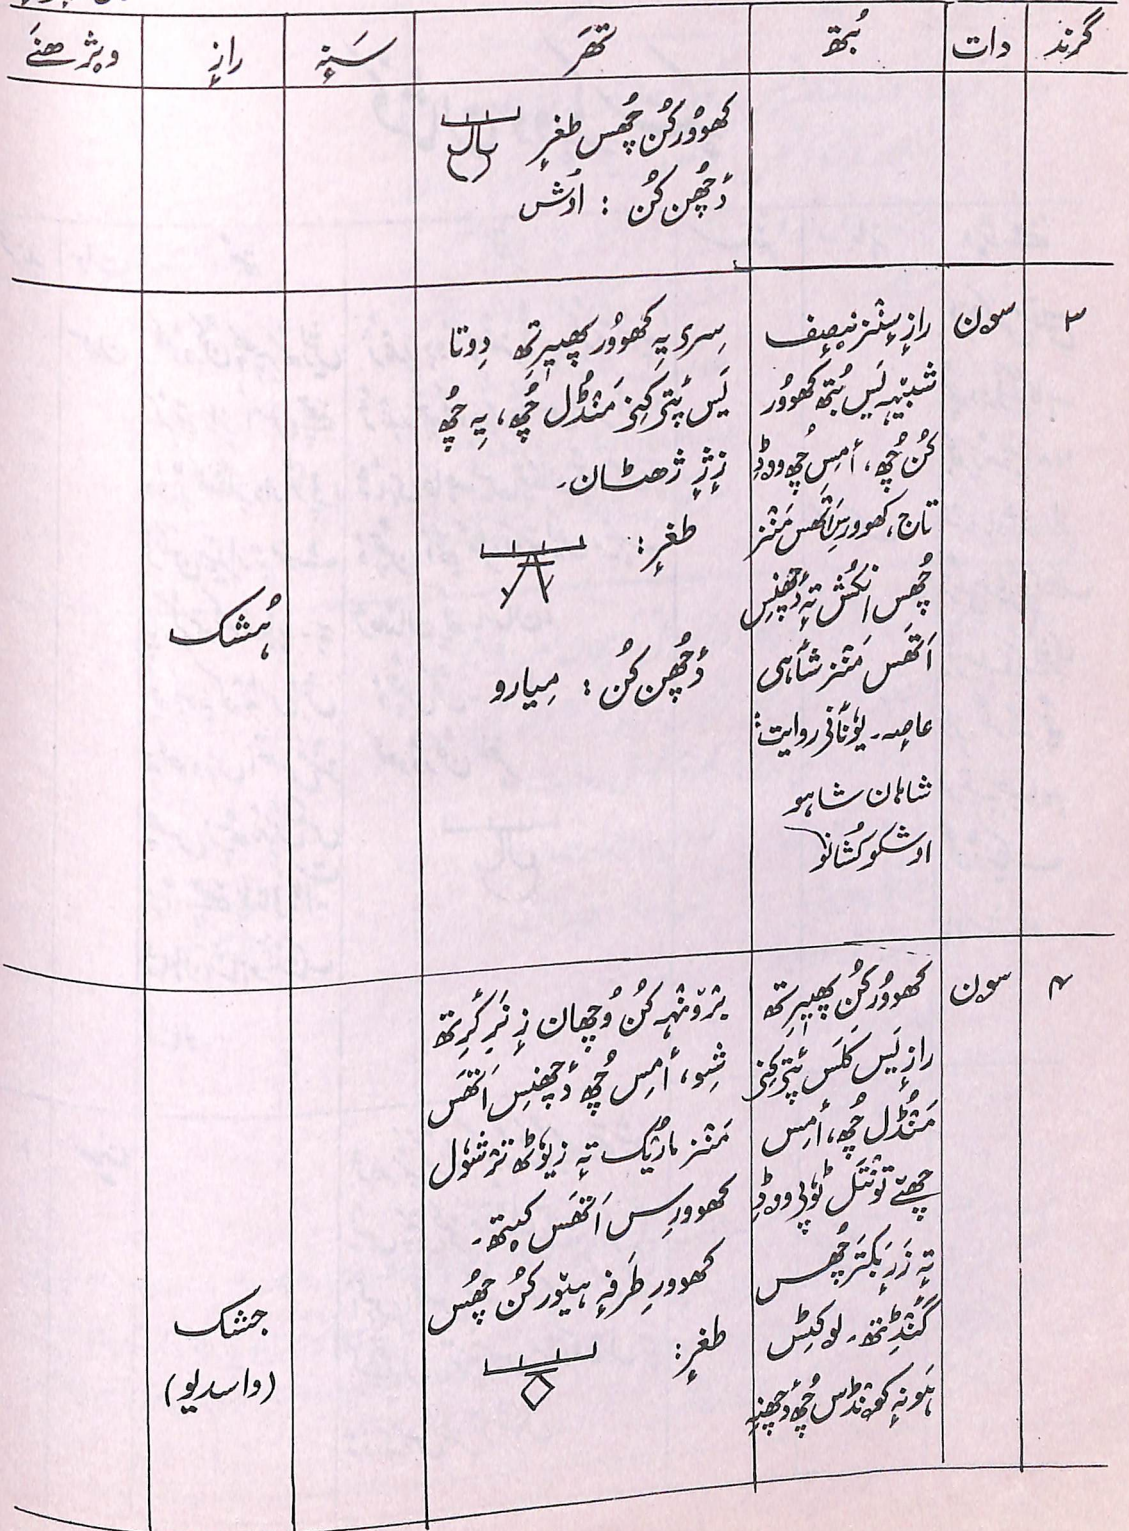 گرند دات بُتھ تھَر سَنہٕ رازٕ ویژھنَے
کھوٚوُر کُن چُھس طغرٕ
دٔچھُن کُن : اوٗش
۳ سۄن
رازٕ سٕنٛز نصٕف
شبیٖہہ یَس بُتھ کھوٚوُر
کُن چُھ، أمِس چُھ ووڈِ
تاج، کھووِرس اَتھَس مَنٛز
چُھس انکُش تہٕ دٔچھنِس
اَتھَس مَنٛز شٲہی
عاصہ۔ یوٗنٲنی روایت:
شاہان شاہو
اوشکو کُشانوٗ
سِری یہِ کھوٚوُر پھیٖرِتھ دِوتا
یَس پٔتۍ کِنۍ مَنٛڈُل چُھ، یہِ چُھ
زٕژٕ ژھٹان۔
طغرٕ:
دٔچھُن کُن : مِیارو
ہُشک
۴ سۄن
کھوٚوُر کُن پھیٖرِتھ
رازٕ یَس کَلَس پٔتۍ کِنۍ
مَنٛڈُل چُھ، أمِس
چھےٚ تونٛتَل ٹوٗپۍ ووڈِ
تہٕ زَرٕ بَکتَر چُھس
گَنٛڈِتھ۔ لوکٹِس
ہَونہٕ کونٛڈس چُھ دٔچھنہِ
برٛونٛہہ کُن وُچھان زٕ نَرِ کٔرِتھ
شِو، أمِس چُھ دٔچھنِس اَتھَس
مَنٛز مارٛیک تہٕ زیوٗٹھ ترشوٗل
کھووِرس اَتھَس کیتھ۔
کھوورِ طَرفہٕ ہیوٚر کُن چُھس
طغرٕ:
جشک
(واسدیو)